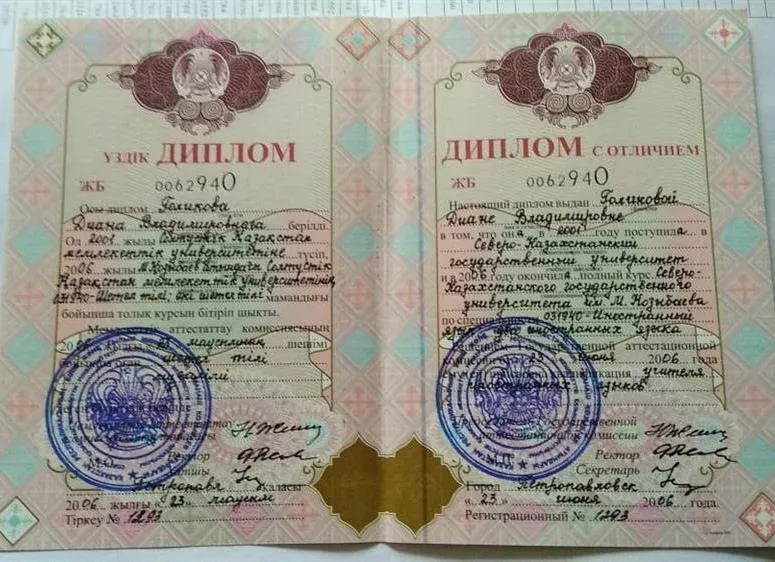 ҮЗДІК ДИПЛОМ
ЖБ 0062940
Осы диплом Голикова
Диана Владимировнаға берілді.
Ол 2001 жылы Солтүстік Қазақстан
мемлекеттік университетіне түсіп,
2006 жылы М.Қозыбаев атындағы Солтүстік
Қазақстан мемлекеттік университетінің
031940-Шетел тілі, екі шетел тілі мамандығы
бойынша толық курсын бітіріп шықты.
Мемлекеттік аттестаттау комиссиясының
2006 жылғы 23 маусымның шешімі
бойынша оған шетел тілі
мұғалімі
Ректор
Хатшы
Петропавл қаласы
2006 жылғы «23» маусым
Тіркеу № 1293
ДИПЛОМ С ОТЛИЧИЕМ
ЖБ 0062940
Настоящий диплом выдан Голиковой
Диане Владимировне
в том, что она в 2001 году поступила в
Северо-Казахстанский
государственный университет
и в 2006 году окончила полный курс Северо-
Казахстанского государственного
университета им. М. Козыбаева
по специальности 031940-Иностранный
язык, два иностранных языка
Решением Государственной аттестационной
комиссии от 23 июня 2006 года
квалификация учителя
иностранных языков
Председатель Государственной
аттестационной комиссии
Ректор
Секретарь
Город Петропавловск
«23» июня 2006 года.
Регистрационный № 1293